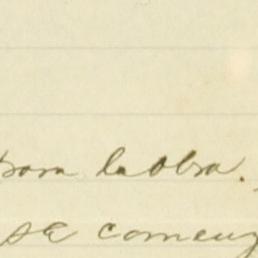 para la obra.
se comenz